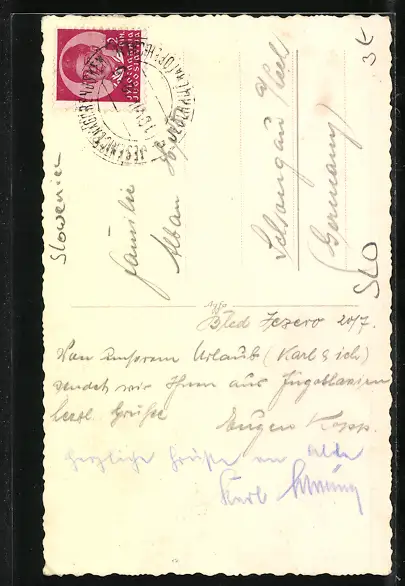 2
DIN
JUGOSLAVIA
JESENICE
Slowenien
Familie
Alban
Schongau a/Lech
(Germany)
SLO
3€
Bled Jezero 20/7.
Von unserem Urlaub (Karl & ich)
sendet wir Ihnen aus Jugoslavien
herzl. Grüße
Eugen Kopp.
herzliche Grüße an alle
Karl